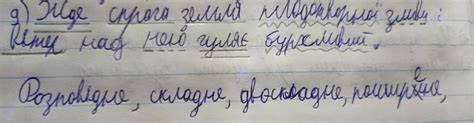 g) Жде спрага земля плодотворної зливи:
Вітер над нею гуляє бурхливий.
Розповідне, складне, двоскладне, поширене,